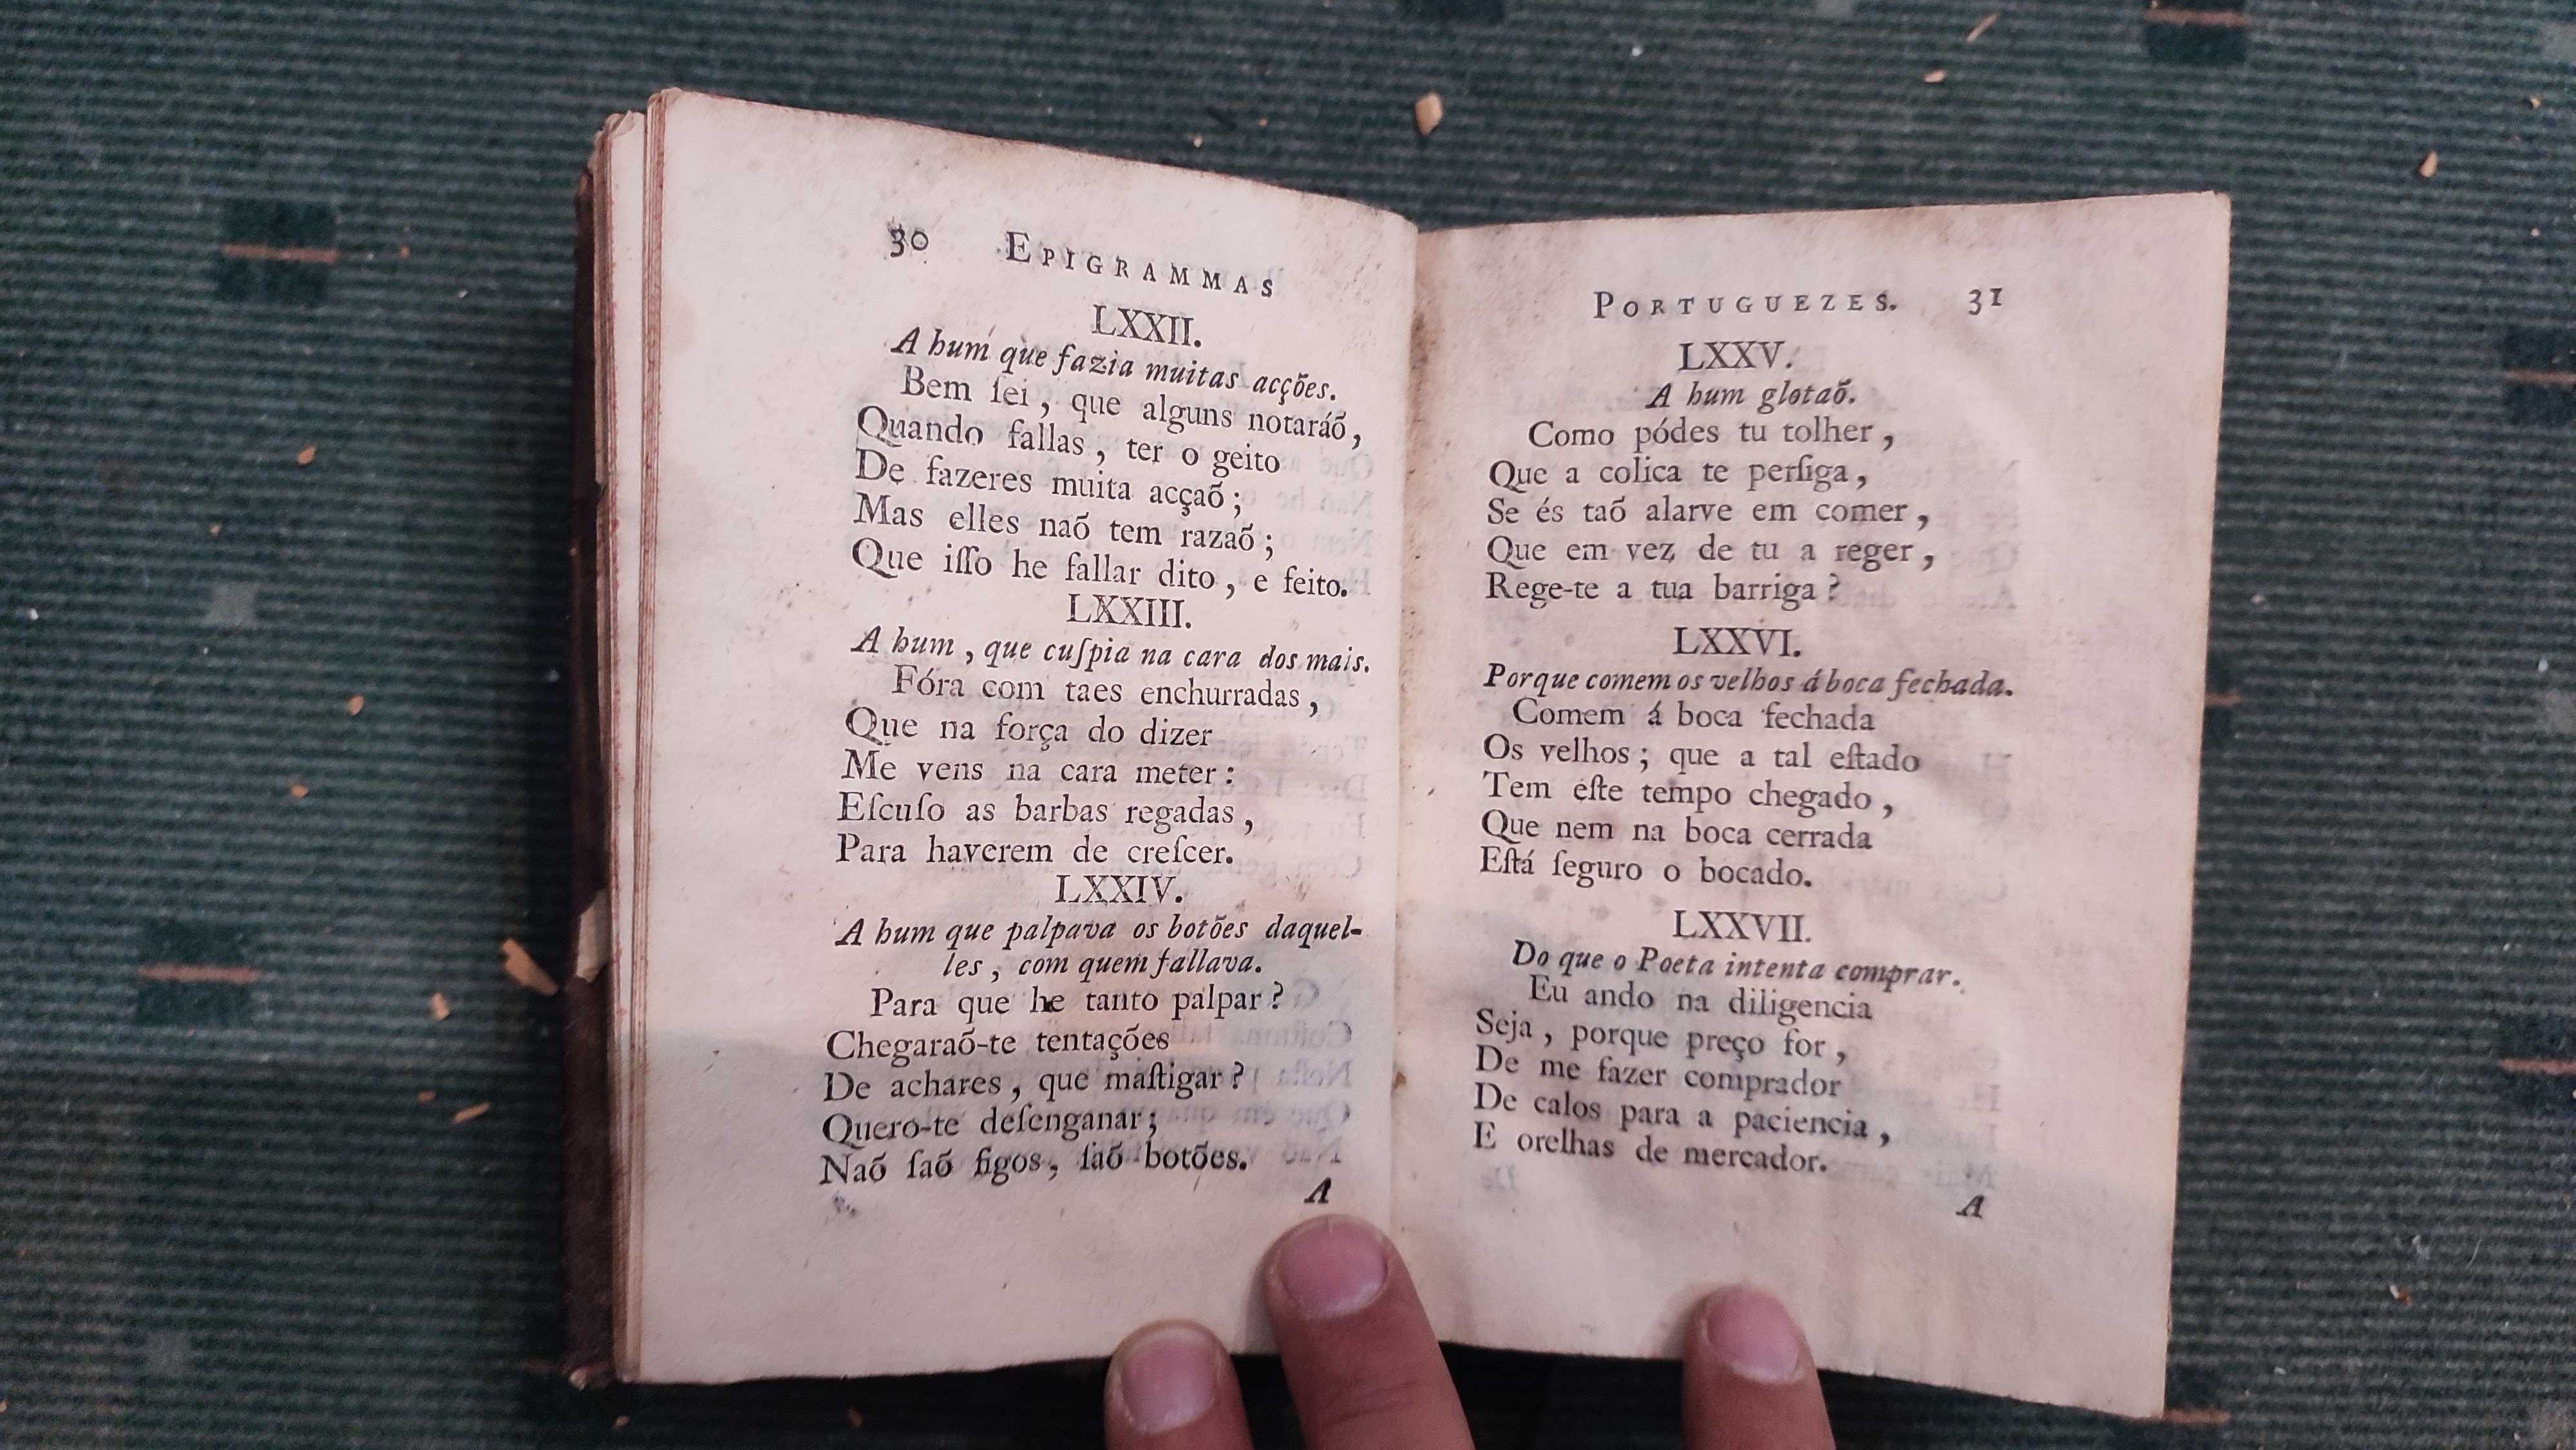 30 EPIGRAMMAS
LXXII.
A hum que fazia muitas acções.
Bem ſei, que alguns notaráõ,
Quando fallas, ter o geito
De fazeres muita acçaõ;
Mas elles naõ tem razaõ;
Que iſſo he fallar dito, e feito.
LXXIII.
A hum, que cuſpia na cara dos mais.
Fóra com taes enchurradas,
Que na força do dizer
Me vens na cara meter:
Eſcuſo as barbas regadas,
Para haverem de creſcer.
LXXIV.
A hum que palpava os botões daquel-
les, com quem fallava.
Para que he tanto palpar?
Chegaraõ-te tentações
De achares, que maſtigar?
Quero-te deſenganar;
Naõ ſaõ figos, ſaõ botões.
A
PORTUGUEZES. 31
LXXV.
A hum glotaõ.
Como pódes tu tolher,
Que a colica te perſiga,
Se és taõ alarve em comer,
Que em vez de tu a reger,
Rege-te a tua barriga?
LXXVI.
Porque comem os velhos á boca fechada.
Comem á boca fechada
Os velhos; que a tal eſtado
Tem eſte tempo chegado,
Que nem na boca cerrada
Eſtá ſeguro o bocado.
LXXVII.
Do que o Poeta intenta comprar.
Eu ando na diligencia
Seja, porque preço for,
De me fazer comprador
De calos para a paciencia,
E orelhas de mercador.
A